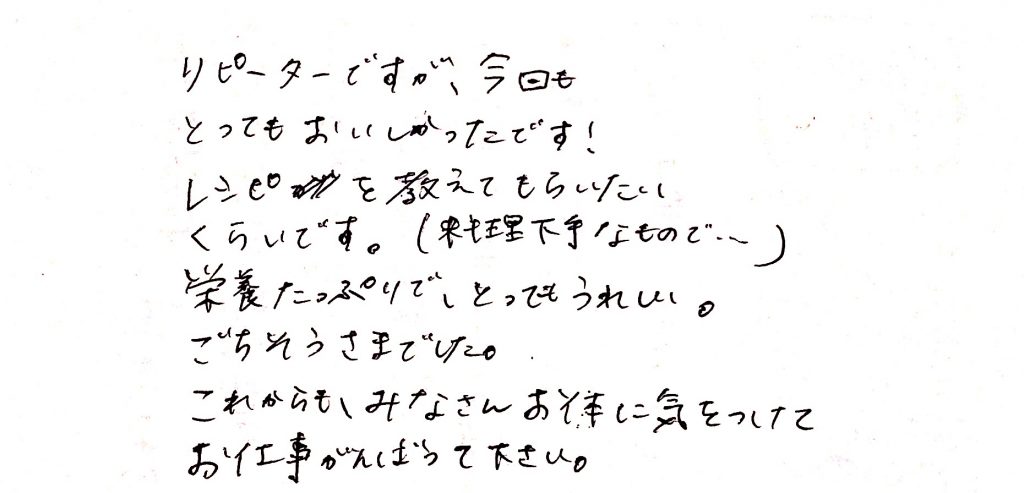 リピーターですが、今回も
とってもおいしかったです!
レシピを教えてもらいたい
くらいです。(料理下手なもので…)
栄養たっぷりで、とってもうれしい。
ごちそうさまでした。
これからも、みなさんお体に気をつけて
お仕事がんばって下さい。